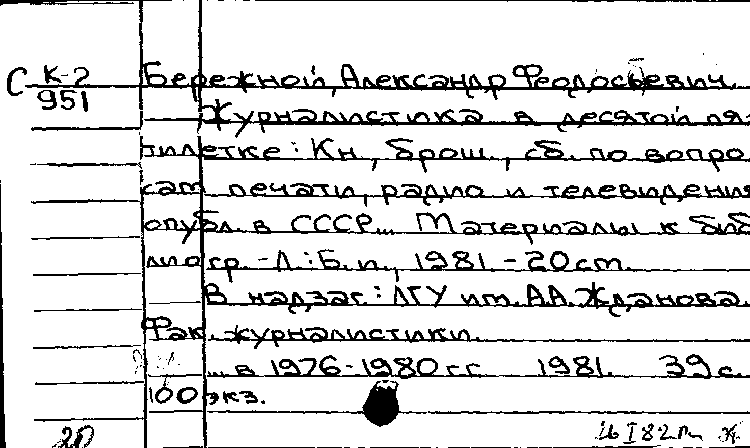 С К-2
951
Бережной, Александр Феодосьевич.
Журналистика в десятой пя-
тилетке: Кн., брош., сб. по вопро
сам печати, радио и телевидения
опубл. в СССР... Материалы к биб
лиогр. - Л.: Б. и., 1981. - 20 ст.
В надзаг.: ЛГУ им. А.А. Жданова.
Фак. журналистики.
... в 1976-1980 гг. 1981. 39 с.
100 экз.
20